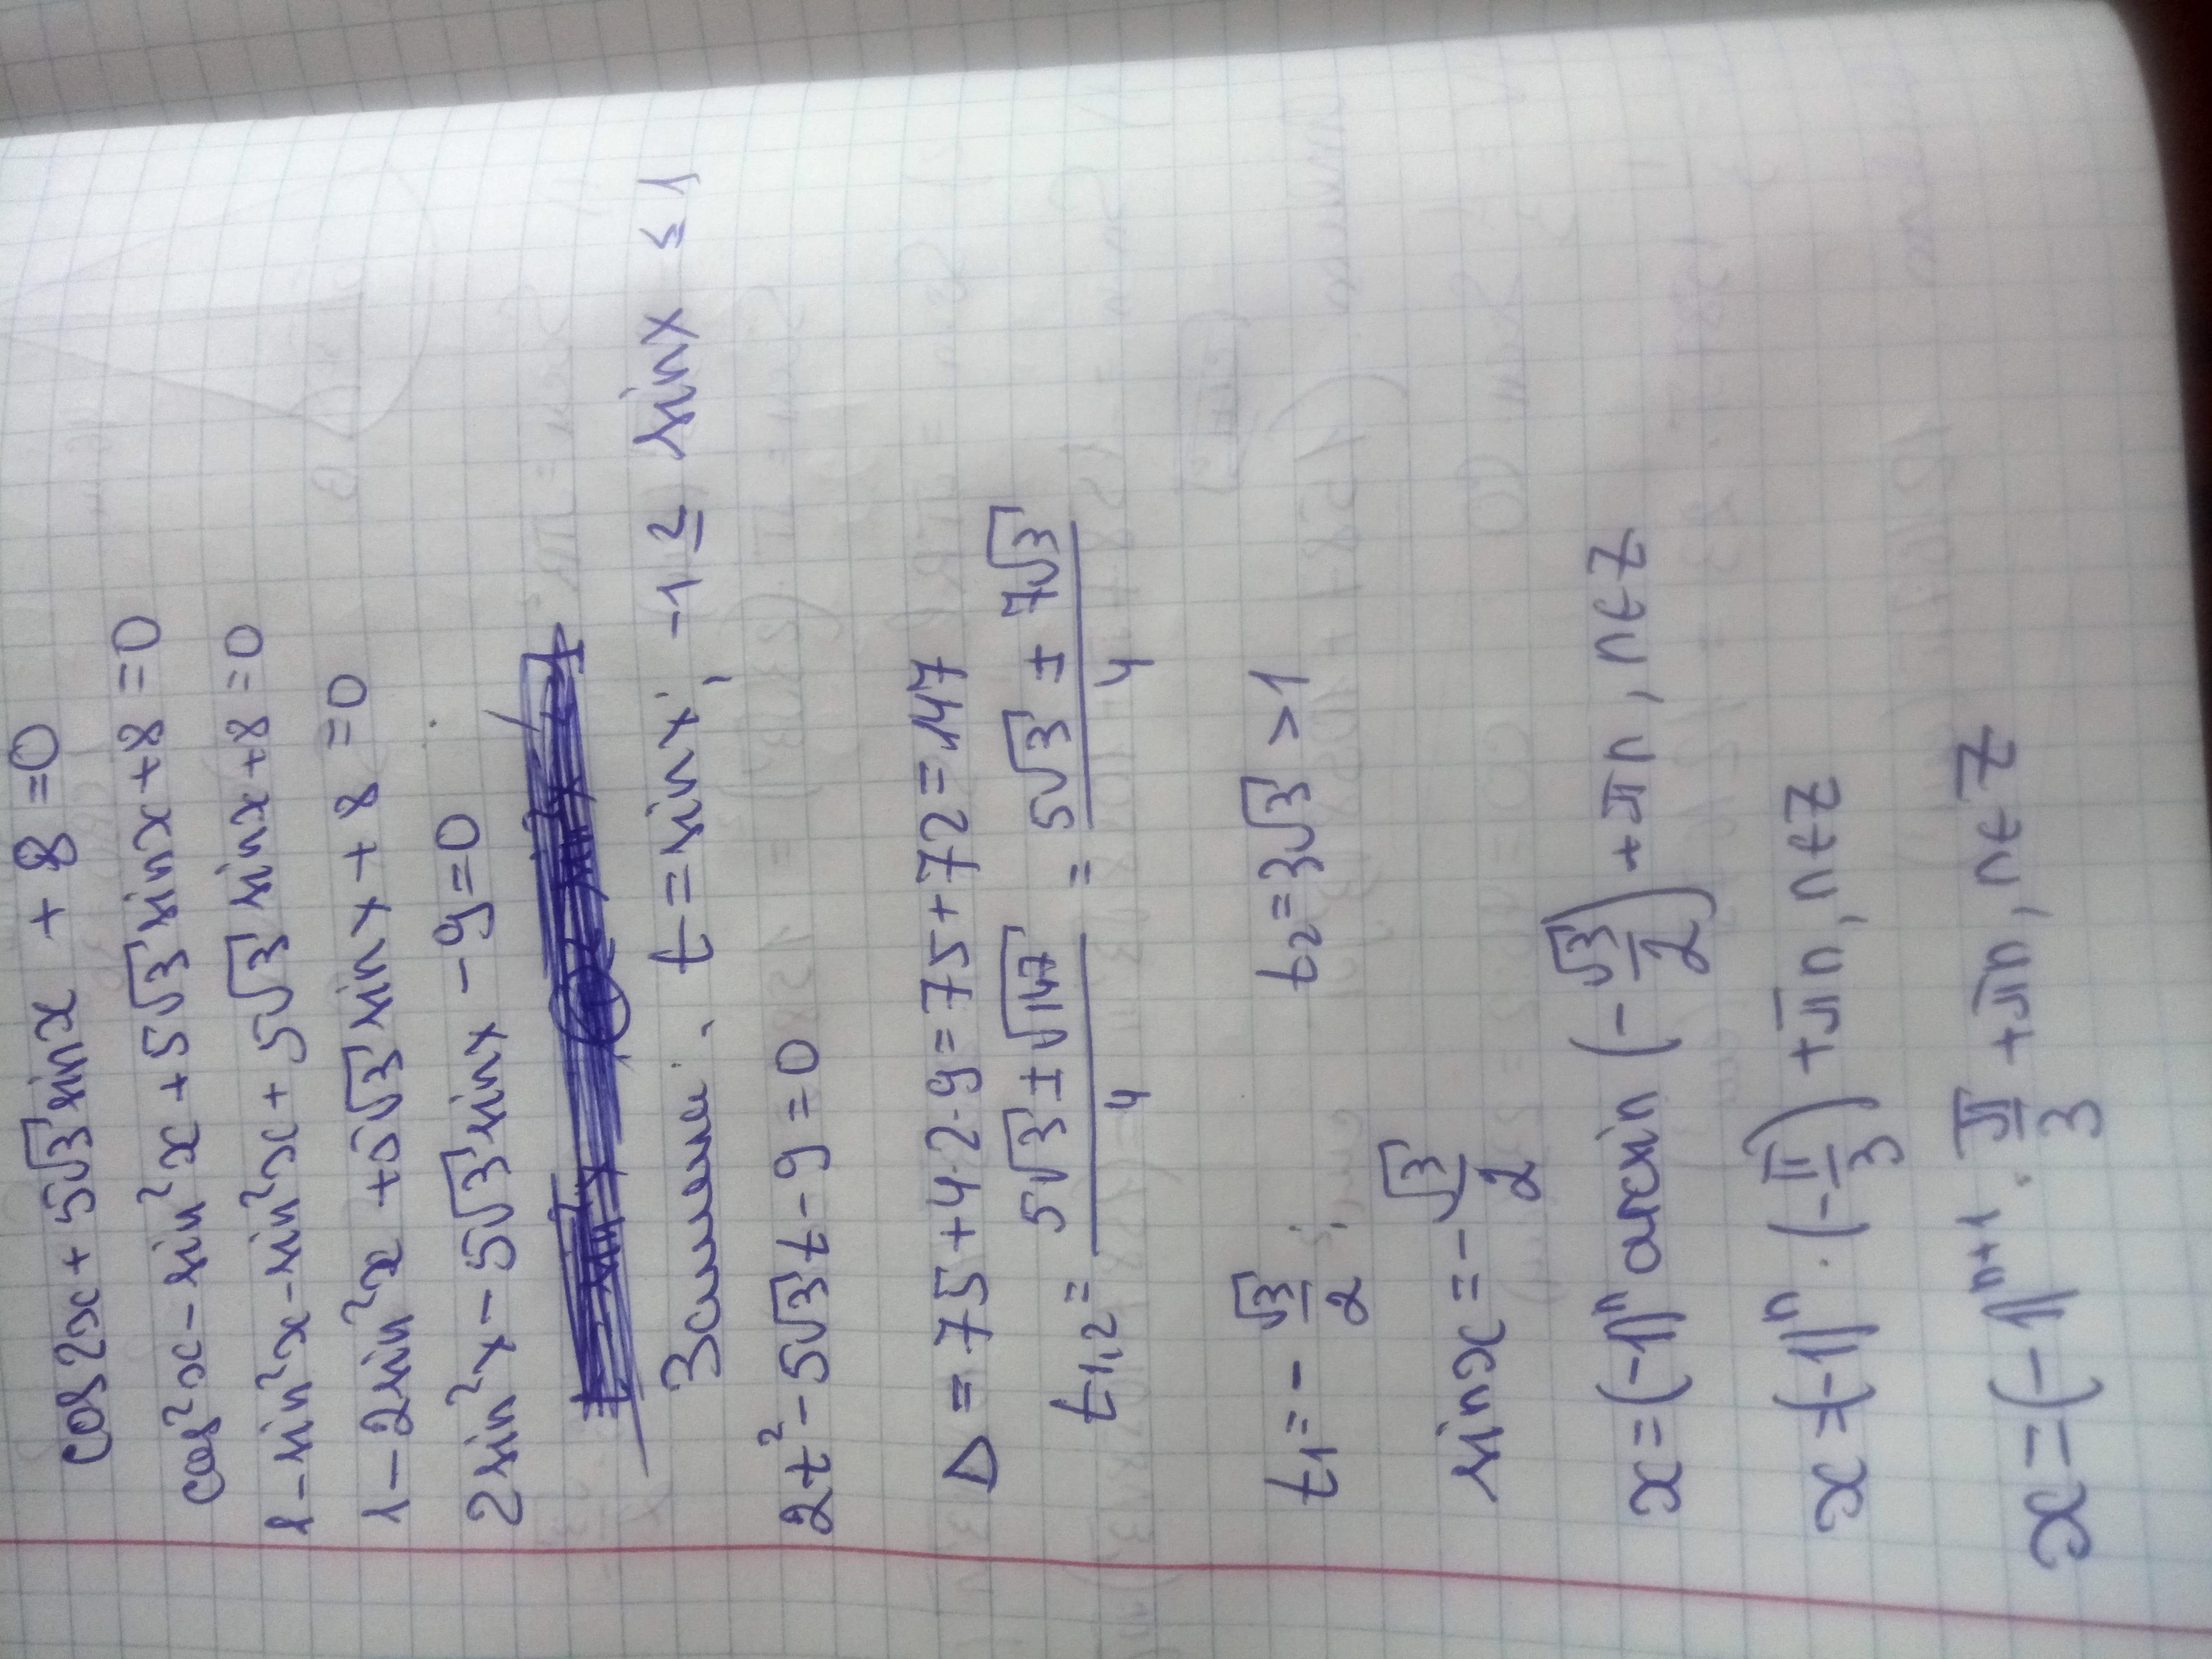 cos2x + 5√3 sinx + 8 = 0
cos²x - sin²x + 5√3 sinx + 8 = 0
1 - sin²x - sin²x + 5√3 sinx + 8 = 0
1 - 2sin²x + 5√3 sinx + 8 = 0
2sin²x - 5√3 sinx - 9 = 0
t = sinx; -1 ≤ sinx ≤ 1
2t² - 5√3 t - 9 = 0
Δ = 75 + 4·2·9 = 75 + 72 = 147
t₁,₂ = (5√3 ± √147)/4 = (5√3 ± 7√3)/4
t₁ = -√3/2; t₂ = 3√3 > 1
sinx = -√3/2
x = (-1)ⁿ arcsin (-√3/2) + πn, n∈Z
x = (-1)ⁿ · (-π/3) + πn, n∈Z
x = (-1)ⁿ⁺¹ · π/3 + πn, n∈Z